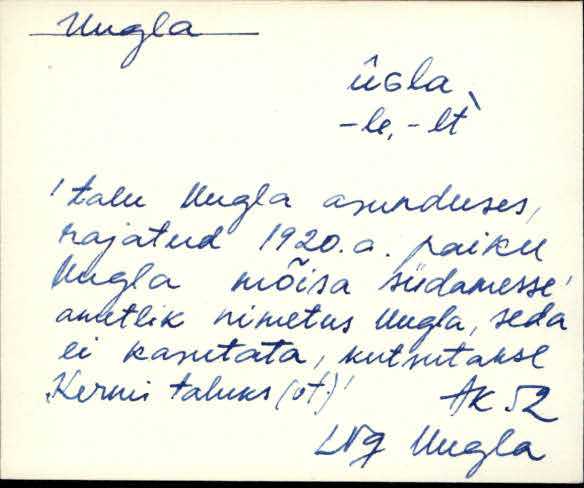 Uugla
ùGla,
-le, -lt
'talu Uugla asunduses,
rajatud 1920.a. paiku
Uugla mõisa südamesse'
ametlik nimetus Uugla, seda
ei kasutata, kutsutakse
Kermi taluks (vt.)' AK 52
LNg Uugla